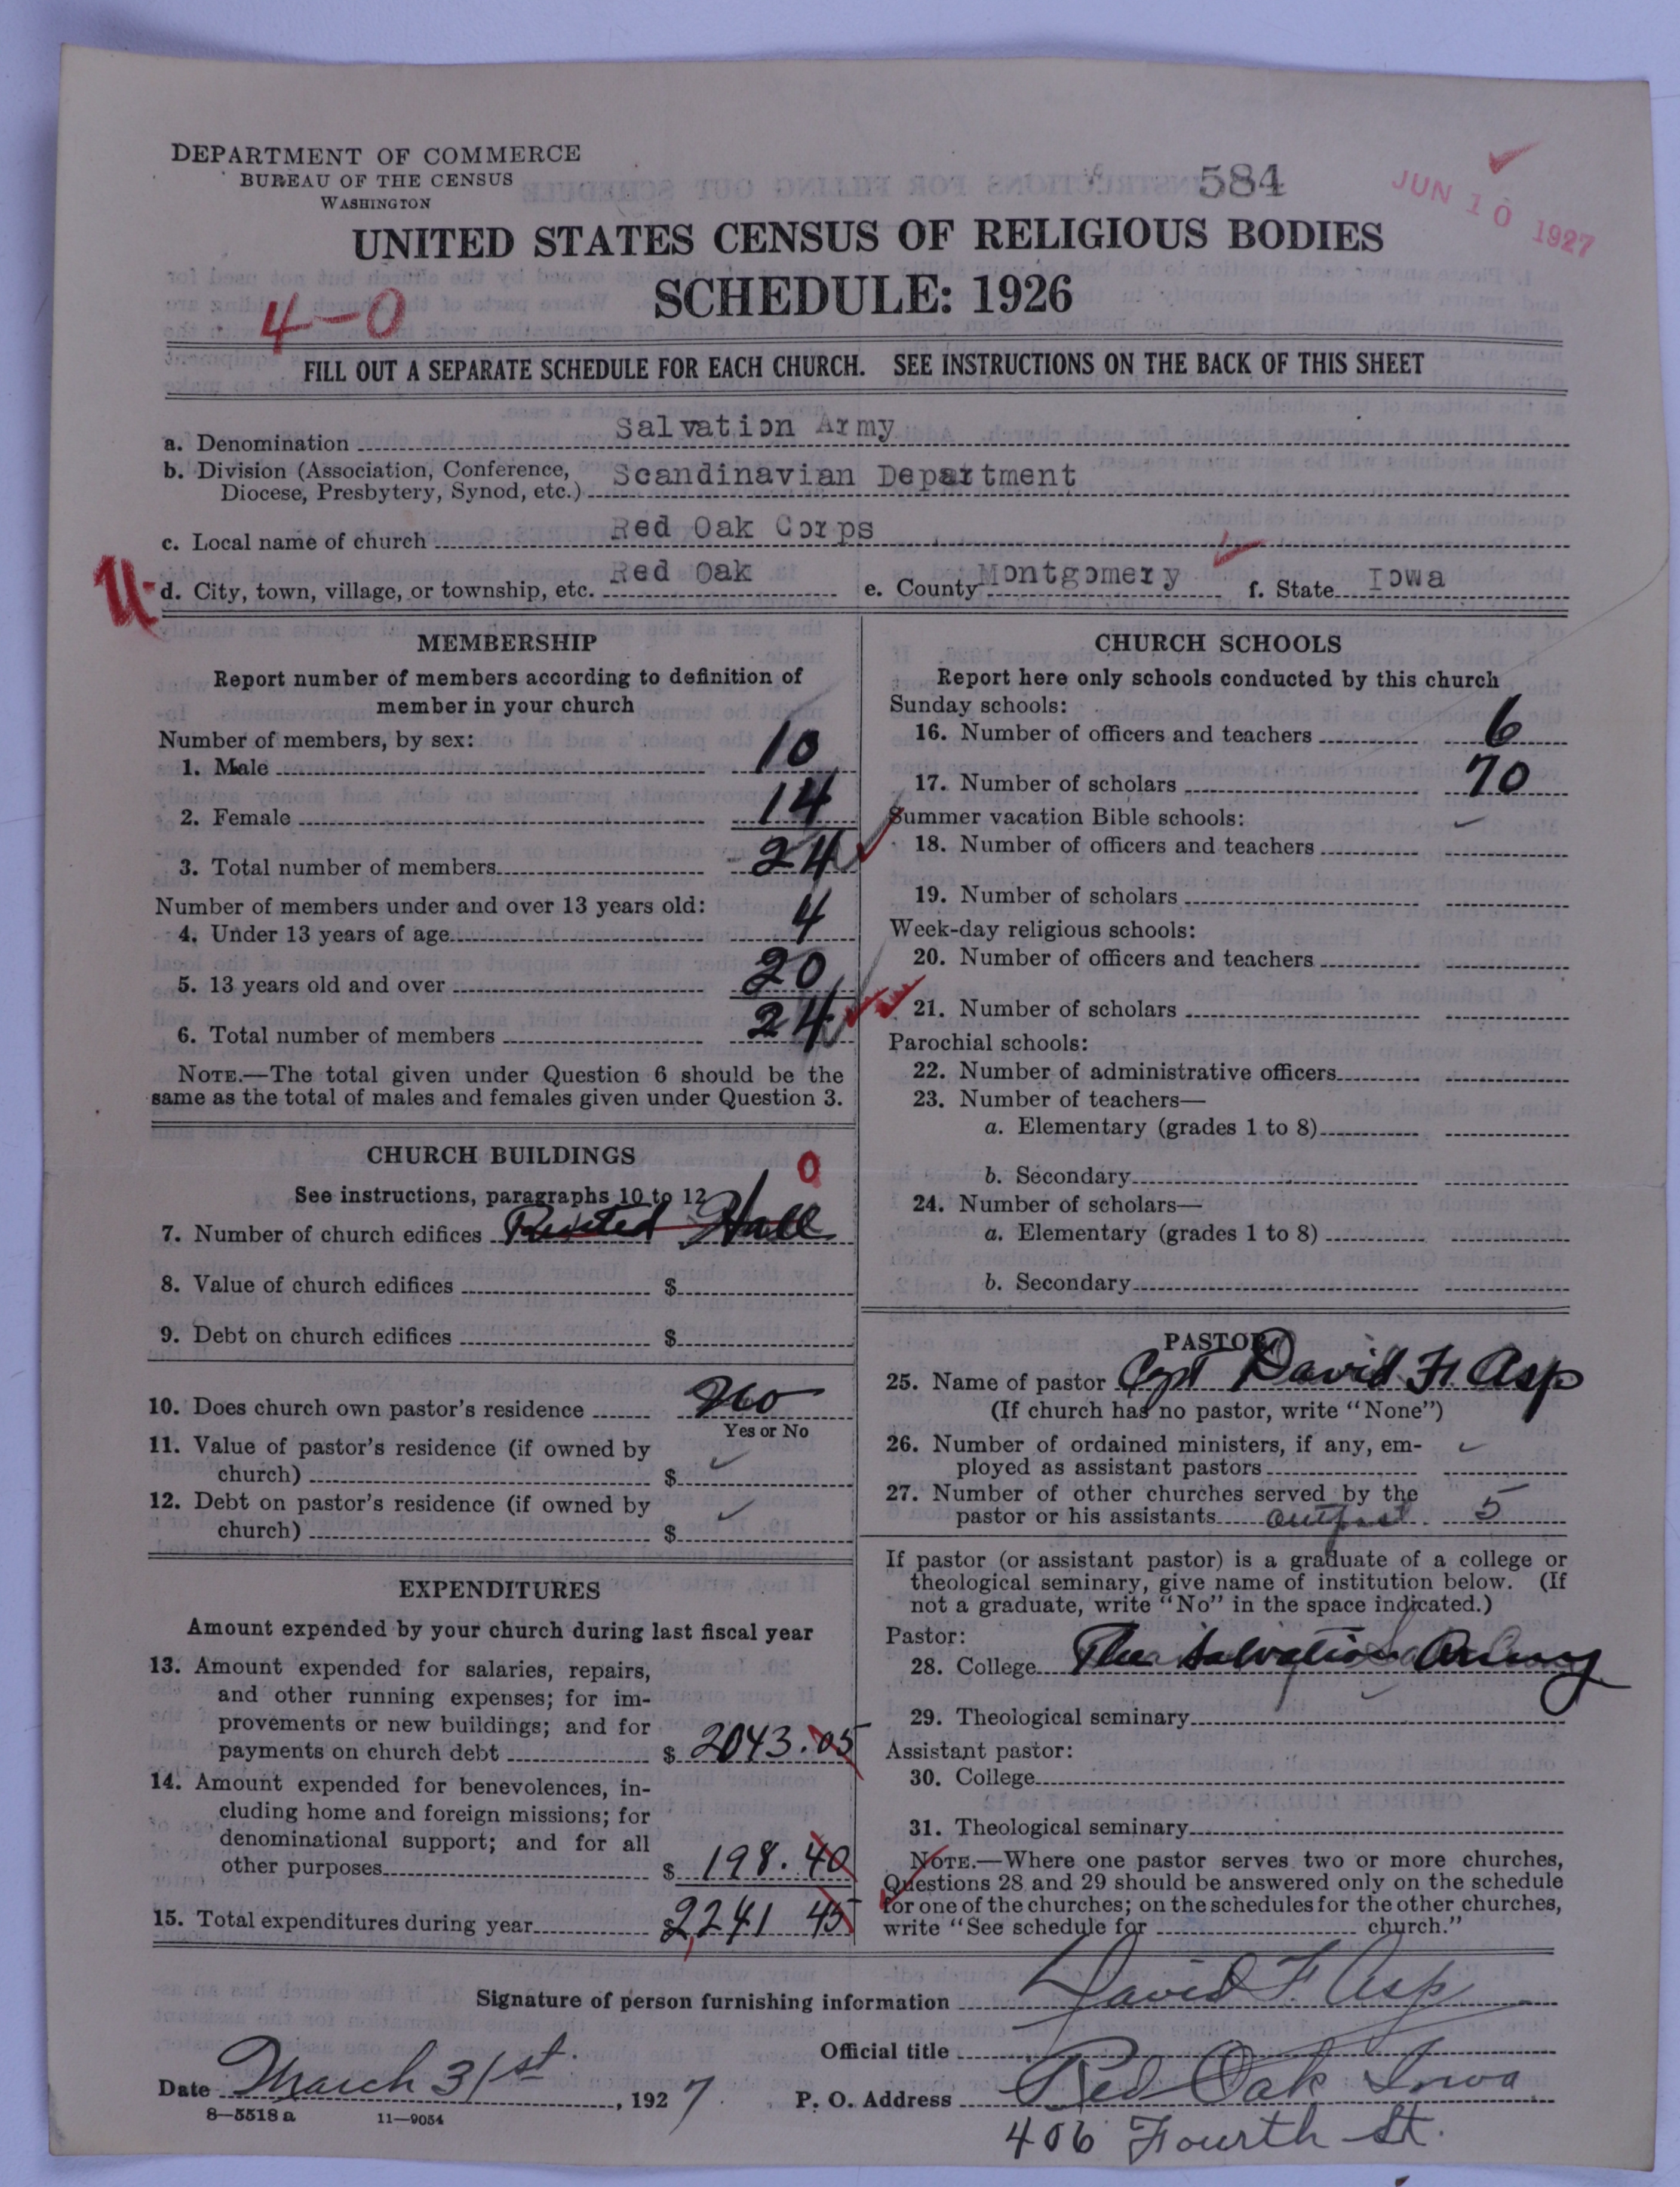 DEPARTMENT OF COMMERCE
BUREAU OF THE CENSUS
WASHINGTON
584
JUN 10 1927
UNITED STATES CENSUS OF RELIGIOUS BODIES
SCHEDULE: 1926
4-0
FILL OUT A SEPARATE SCHEDULE FOR EACH CHURCH. SEE INSTRUCTIONS ON THE BACK OF THIS SHEET
a. Denomination Salvation Army
b. Division (Association, Conference,
Diocese, Presbytery, Synod, etc.) Scandinavian Department
c. Local name of church Red Oak Corps
d. City, town, village, or township, etc. Red Oak e. County Montgomery f. State Iowa
MEMBERSHIP
Report number of members according to definition of
member in your church
Number of members, by sex:
1. Male 10
2. Female 14
3. Total number of members 24
Number of members under and over 13 years old:
4. Under 13 years of age 4
5. 13 years old and over 20
6. Total number of members 24
NOTE.—The total given under Question 6 should be the
same as the total of males and females given under Question 3.
CHURCH BUILDINGS
See instructions, paragraphs 10 to 12
0
7. Number of church edifices Rented Hall
8. Value of church edifices $
9. Debt on church edifices $
10. Does church own pastor's residence No
Yes or No
11. Value of pastor's residence (if owned by
church) $
12. Debt on pastor's residence (if owned by
church) $
EXPENDITURES
Amount expended by your church during last fiscal year
13. Amount expended for salaries, repairs,
and other running expenses; for im-
provements or new buildings; and for
payments on church debt $ 2043.05
14. Amount expended for benevolences, in-
cluding home and foreign missions; for
denominational support; and for all
other purposes $ 198.40
15. Total expenditures during year $ 2,241 45
CHURCH SCHOOLS
Report here only schools conducted by this church
Sunday schools:
16. Number of officers and teachers 6
17. Number of scholars 70
Summer vacation Bible schools:
18. Number of officers and teachers
19. Number of scholars
Week-day religious schools:
20. Number of officers and teachers
21. Number of scholars
Parochial schools:
22. Number of administrative officers
23. Number of teachers—
a. Elementary (grades 1 to 8)
b. Secondary
24. Number of scholars—
a. Elementary (grades 1 to 8)
b. Secondary
PASTOR
25. Name of pastor Capt David F. Asp
(If church has no pastor, write "None")
26. Number of ordained ministers, if any, em-
ployed as assistant pastors
27. Number of other churches served by the
pastor or his assistants outpost 5
If pastor (or assistant pastor) is a graduate of a college or
theological seminary, give name of institution below. (If
not a graduate, write "No" in the space indicated.)
Pastor:
28. College The Salvation Army
29. Theological seminary
Assistant pastor:
30. College
31. Theological seminary
NOTE.—Where one pastor serves two or more churches,
Questions 28 and 29 should be answered only on the schedule
for one of the churches; on the schedules for the other churches,
write "See schedule for church."
Signature of person furnishing information David F. Asp
Official title
Date March 31st. , 1927. P. O. Address Red Oak Iowa
406 Fourth St.
8—5518 a 11—9054